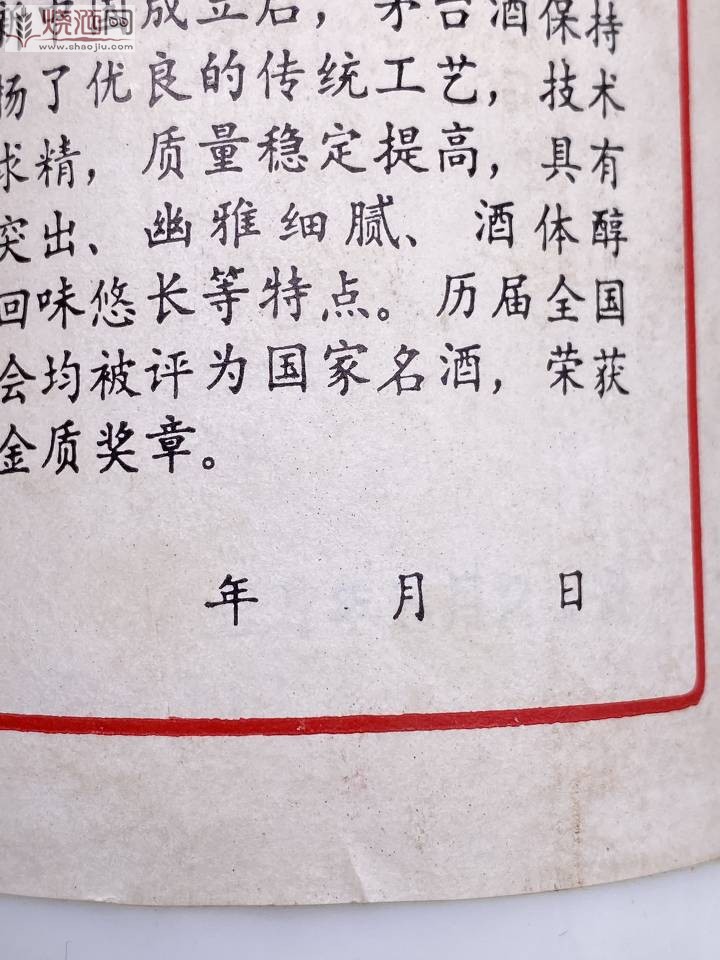 烧酒网
www.shaojiu.com
成立后，茅台酒保持
扬了优良的传统工艺，技术
求精，质量稳定提高，具有
突出、幽雅细腻、酒体醇
回味悠长等特点。历届全国
会均被评为国家名酒，荣获
金质奖章。
年 月 日